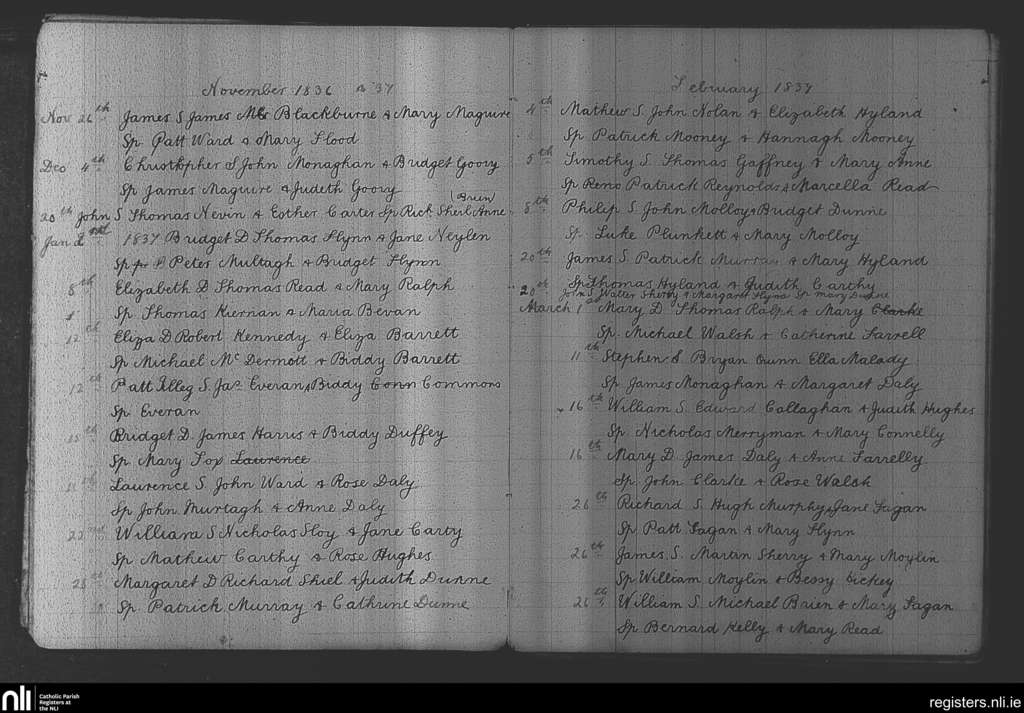 November 1836 & '37
Nov 26th James S James Mc Blackburne & Mary Maguire
Sp Patt Ward & Mary Flood
Dec 4th Christopher S John Monaghan & Bridget Goory
Sp James Maguire & Judeth Goory
Brien
20th John S Thomas Nevin & Esther Carter Sp Rich. Sherl Anne
Jan 2nd 1837 Bridget D Thomas Flynn & Jane Neylen
Sp Peter Multagh & Bridget Flynn
8th Elizabeth D Thomas Read & Mary Ralph
Sp Thomas Kiernan & Maria Bevan
12th Eliza D Robert Kennedy & Eliza Barrett
Sp Michael Mc Dermott & Biddy Barrett
12th Patt Illeg S Jas. Everan & Biddy Conn Commons
Sp Everan
15th Bridget D. James Harris & Biddy Duffey
Sp Mary Fox Laurence
Laurence S John Ward & Rose Daly
Sp John Murtagh & Anne Daly
22nd William S Nicholas Sloy & Jane Carty
Sp Mathew Carthy & Rose Hughes
Margaret D Richard Shiel & Judith Dunne
Sp Patrick Murray & Cathrine Dunne
February 1837
4th Mathew S. John Nolan & Elizabeth Hyland
Sp Patrick Mooney & Hannagh Mooney
5th Timothy S. Thomas Gaffney & Mary Anne
Sp Reno Patrick Reynolds & Marcella Read
8th Philip S John Molloy & Bridget Dunne
Sp Luke Plunkett & Mary Molloy
20th James S Patrick Murray & Mary Hyland
Sp Thomas Hyland & Judith Carthy
20th John S Walter Sherry & Margaret Flynn Sp Mary Dunne
March 1 Mary D Thomas Ralph & Mary Clarke
Sp. Michael Walsh & Catherine Farrell
11th Stephen S Bryan Quinn Ella Malady
Sp James Monaghan & Margaret Daly
16th William S. Edward Callaghan & Judith Hughes
Sp. Nicholas Merryman & Mary Connelly
16th Mary D James Daly & Anne Farrelly
Sp John Clarke & Rose Walsh
26th Richard S Hugh Murphy & Jane Fagan
Sp Patt Fagan & Mary Flynn
26th James S. Martin Sherry & Mary Moylin
Sp William Moylin & Bessy Hickey
26th William S Michael Brien & Mary Fagan
Sp Bernard Kelly & Mary Read
nli Catholic Parish
Registers at
the NLI
registers.nli.ie